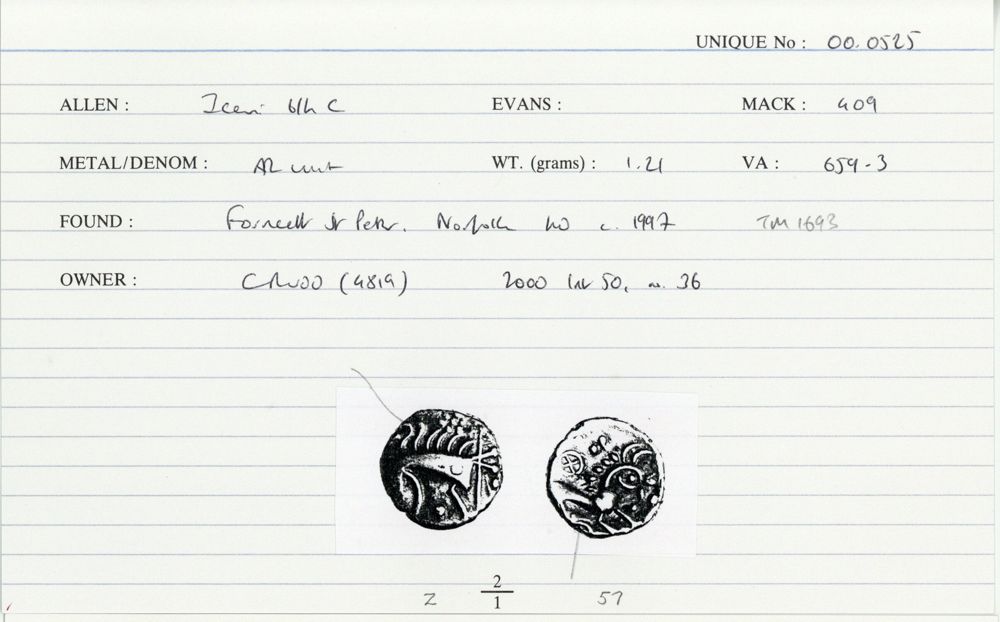 UNIQUE No : 00.0525
ALLEN : Iceni b/h C EVANS : MACK : 409
METAL/DENOM : AR unit WT. (grams) : 1.21 VA : 659-3
FOUND : Forncett St Peter. Norfolk c. 1997 TM 1693
OWNER : (4819) 2000 50, no. 36
2
Z 1 57